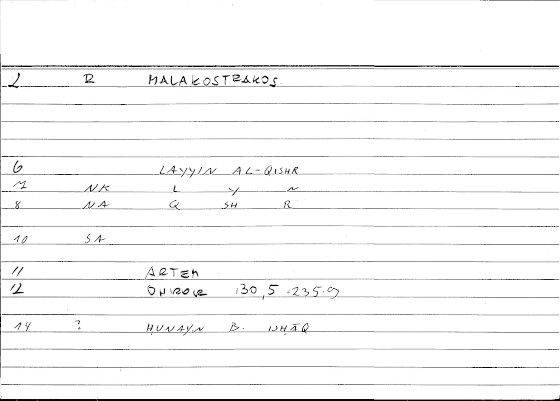 2 R MALAKOSTRAKOS
6 LAYYIN AL-QISHR
7 NK L Y N
8 NA Q SH R
10 SA
11 ARTEM
12 ONIROCR 130,5 - 235.9
14 ? HUNAYN B. ISHĀQ